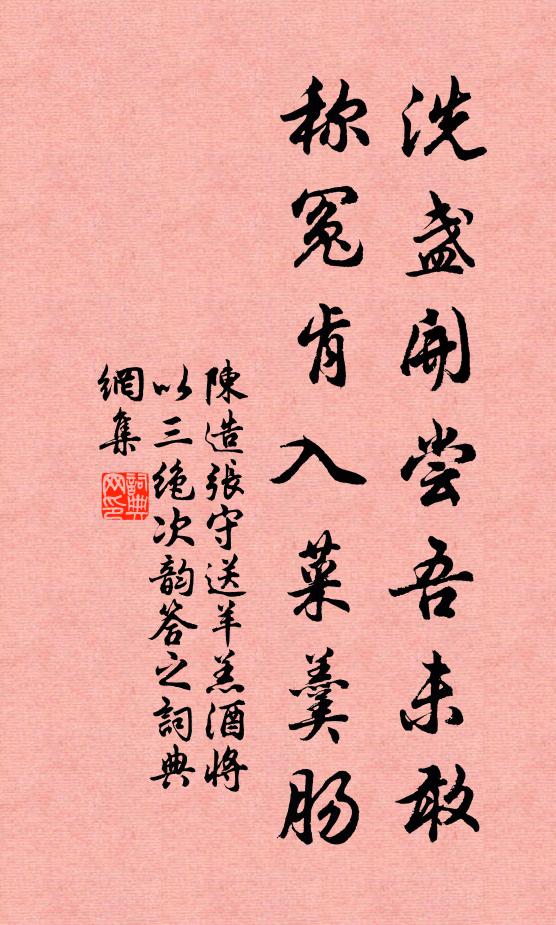 洗盏開尝吾未敢
称冤肯入菜羹肠
陳造張守送羊羔酒將
以三绝次韵答之詞典
網集
詞典网印